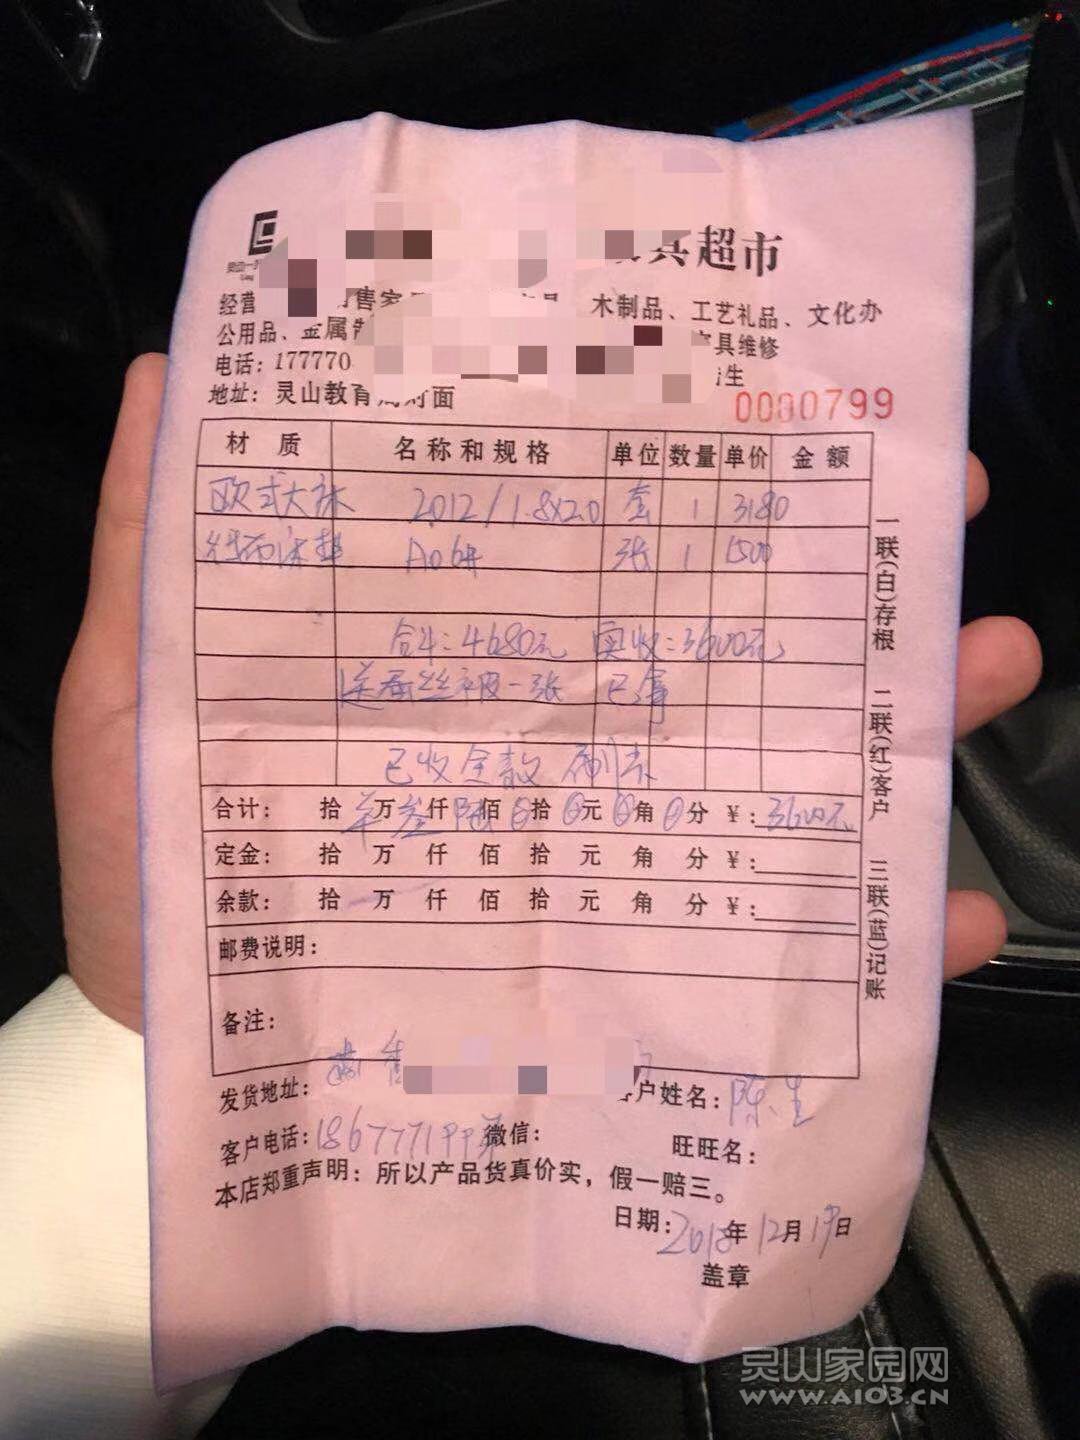 具超市
经营 售家 木制品、工艺礼品、文化办
公用品、金属 家具维修
电话:177770 生
地址:灵山教育局对面
0000799
材质 名称和规格 单位 数量 单价 金额
欧式大床 2012/1.8×2.0 套 1 3180
床垫 A06# 张 1 1500
合计:4680元 实收:3600元
送蚕丝被一张 已拿
已收全款 刷卡
合计: 拾 万叁仟陆佰 0拾 0元 0角 0分 ¥:3600元
定金: 拾 万 仟 佰 拾 元 角 分 ¥:
余款: 拾 万 仟 佰 拾 元 角 分 ¥:
邮费说明:
备注:
发货地址: 客户姓名:陈生
客户电话:1867771 微信:
旺旺名:
本店郑重声明:所以产品货真价实,假一赔三。
日期:2018年12月19日
盖章
一联(白)存根
二联(红)客户
三联(蓝)记账
灵山家园网
WWW.A103.CN